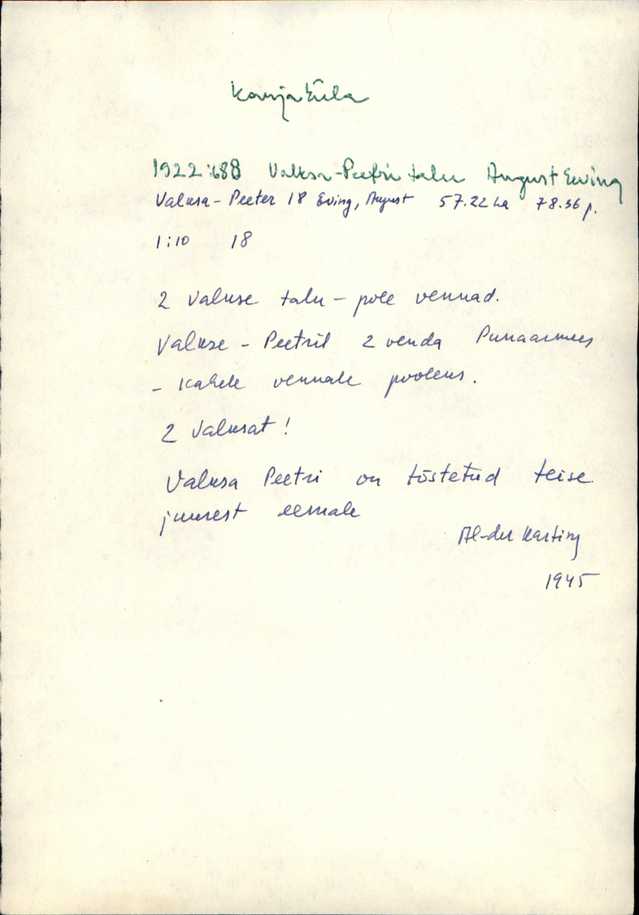 Karja küla
1922:688 Valusa-Peetri talu August Eeving
Valusa-Peeter 18 Eving, August 57.22 ha 78.36 p.
1:10 18
2 Valuse talu – pole vennad.
Valuse - Peetril 2 venda Punaarmees
- kahele vennale pooleks.
2 Valusat!
Valusa Peetri on tõstetud teise
juurest eemale
Al-der
1945